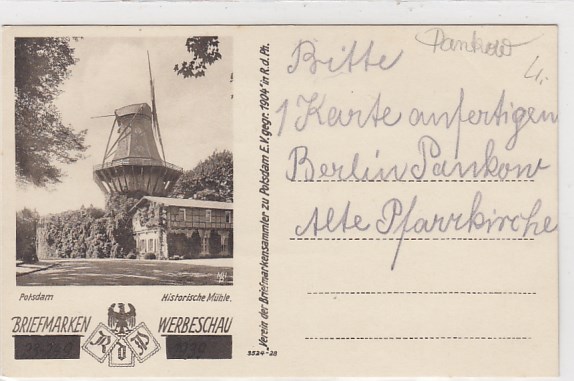 Potsdam
Historische Mühle.
BRIEFMARKEN WERBESCHAU
RdP
„Verein der Briefmarkensammler zu Potsdam E.V. gegr. 1904" in R.d.Ph.
3524-28
Pankow
Bitte
1 Karte anfertigen
Berlin Pankow
Alte Pfarrkirche